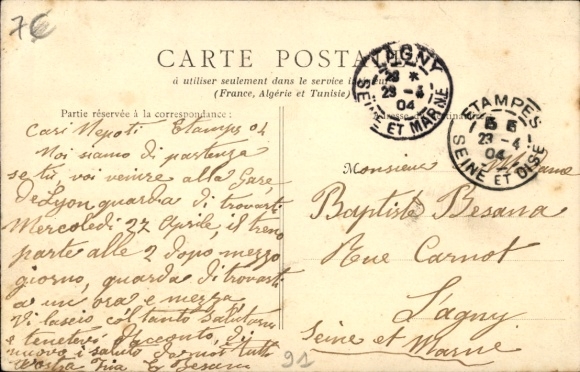 7€
CARTE POSTALE
à utiliser seulement dans le service intérieur
(France, Algérie et Tunisie)
Partie réservée à la correspondance:
LAGNY
SEINE ET MARNE
04
ETAMPES
23 - 4
04
SEINE ET OISE
Cari Nepoti Etamps 04
Noi siamo di partenza
se tu voi venire alla Gare
de Lyon guarda di trovarti
Mercoledi 27 Aprile, il treno
parte alle 2 dopo mezzo
giorno, guarda di trovarti
a un ora e mezza,
Vi lascio col tanto salutarvi
e tenetevi d'acconto, di
nuovo i saluto da noi tutti
vostra Zia Besana
Monsieur Madame
Baptiste Besana
Rue Carnot
Lagny
Seine et Marne
91